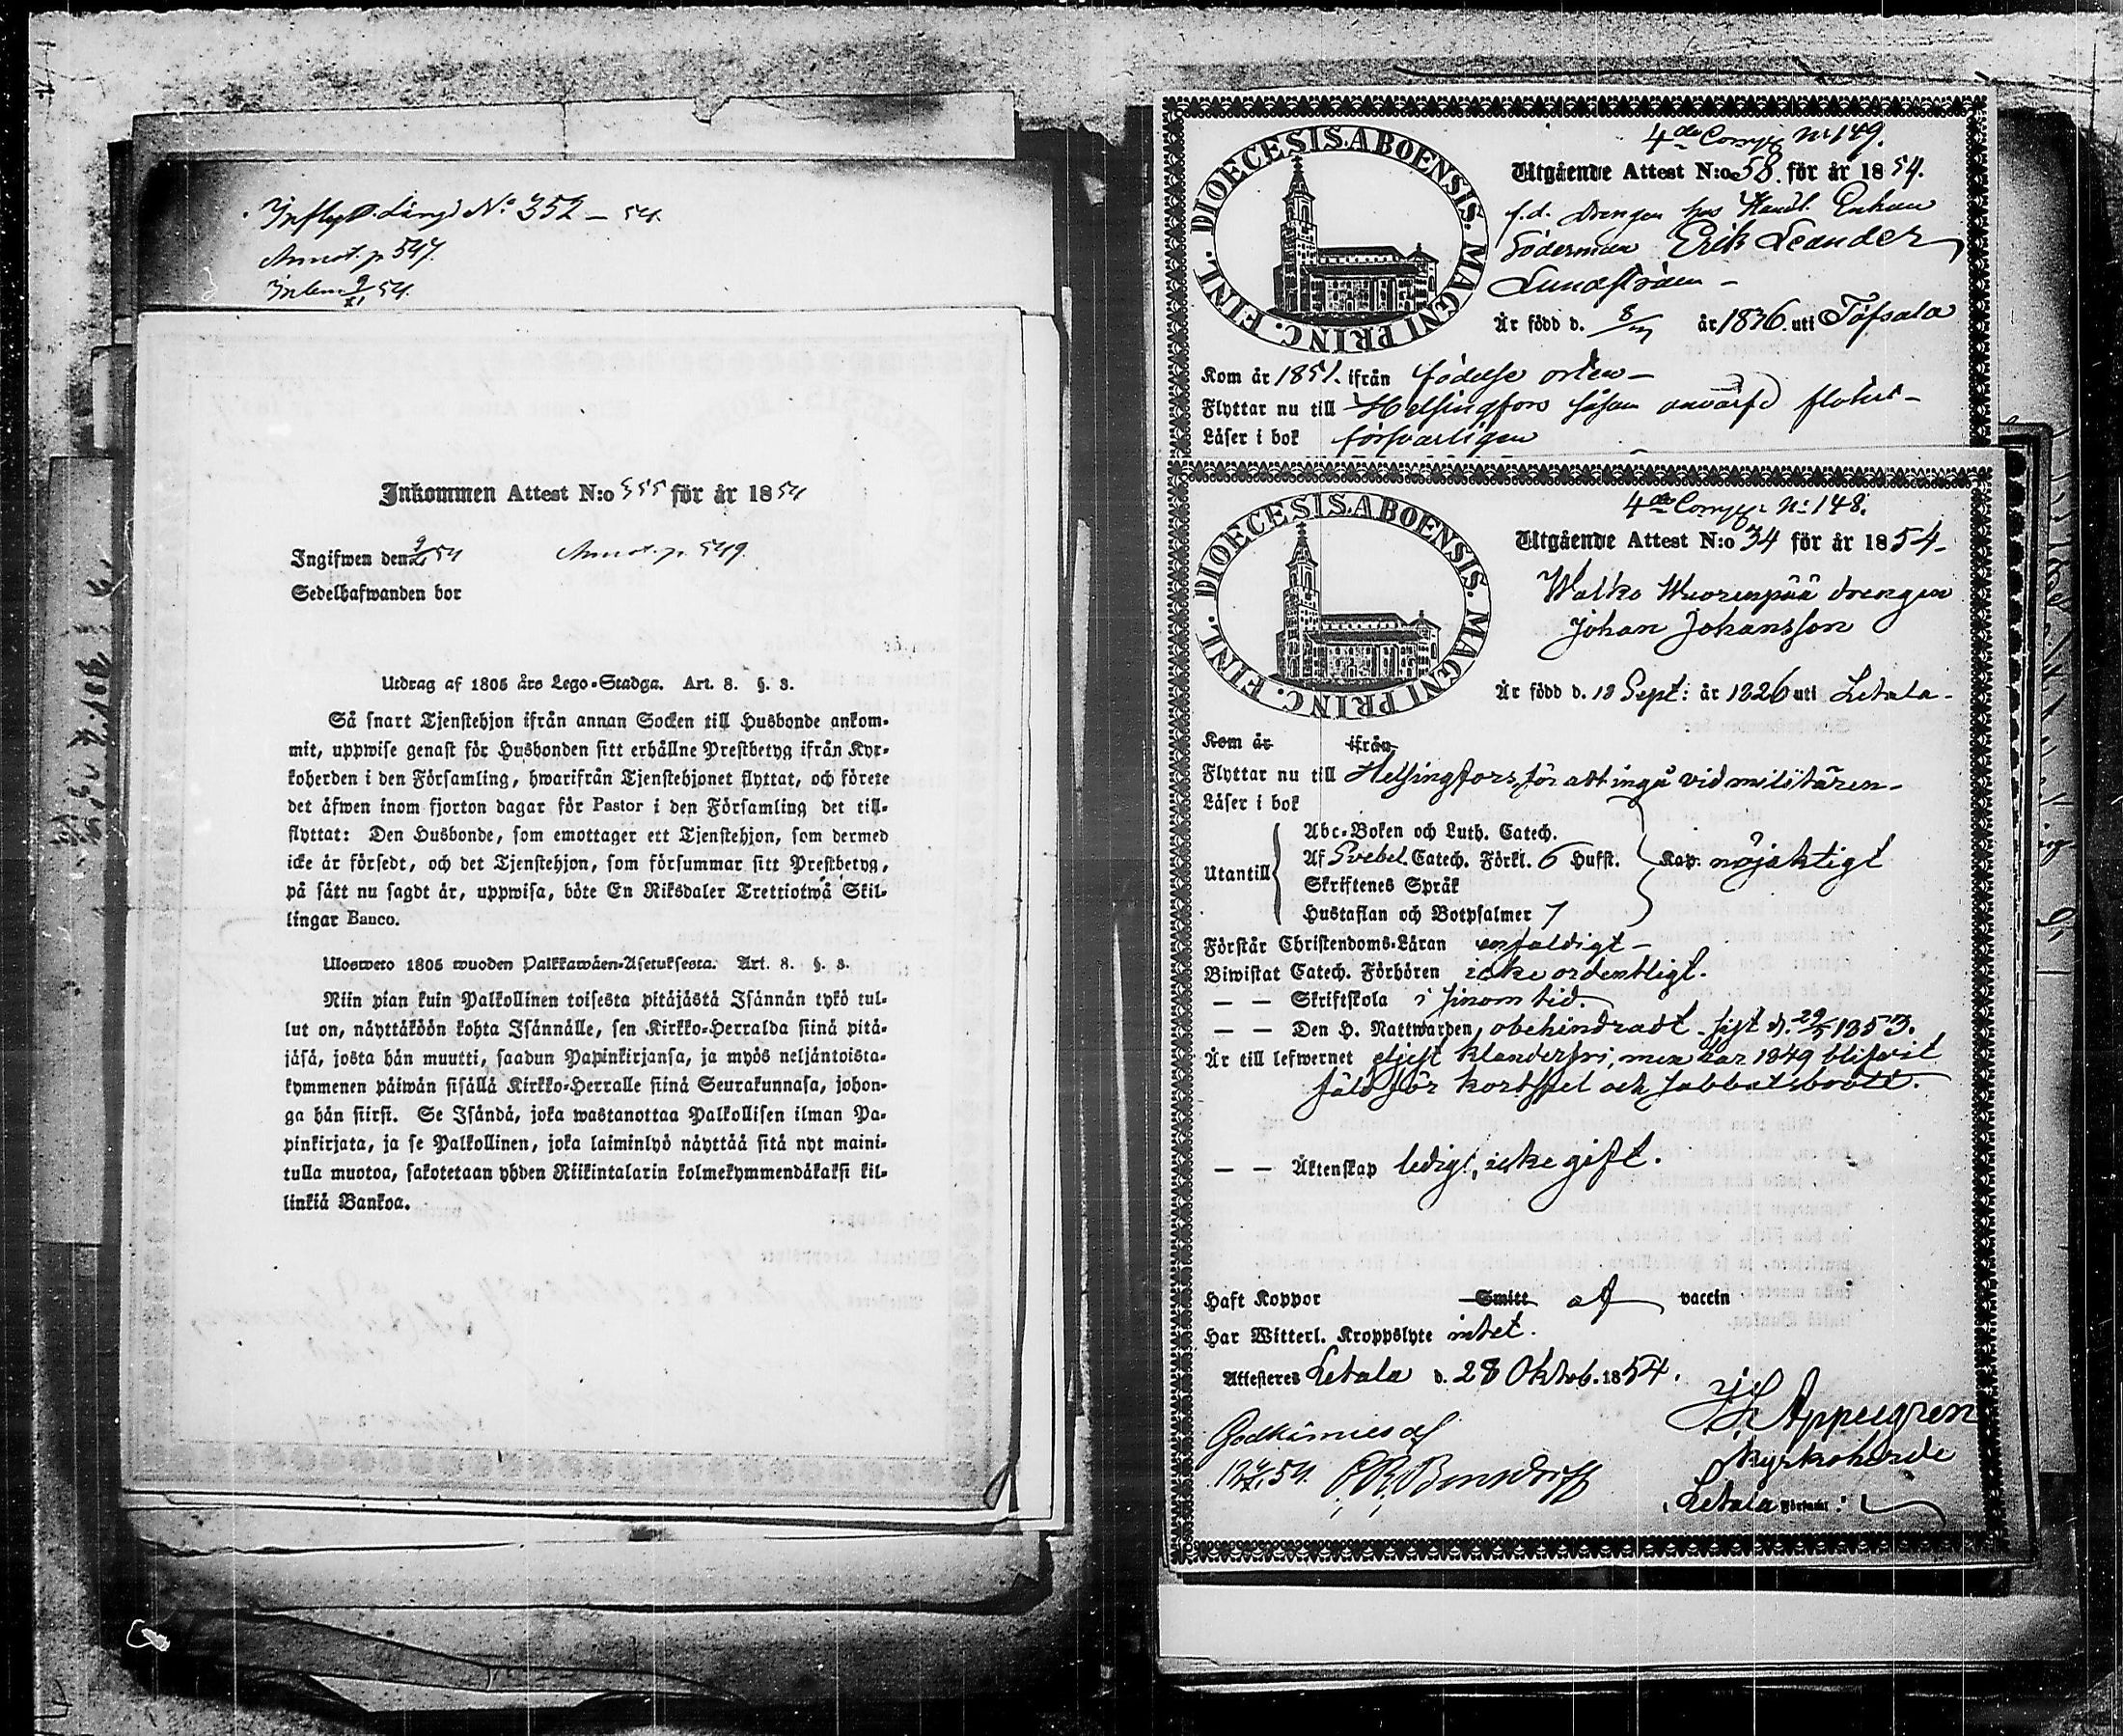 Inflytt. Längd No 352 – 54.
Annot. p 547.
Inlem 9/XI 54.
Inkommen Attest N:o 355 för år 1854
Ingifwen den 9/XI 54 Annot. p. 549.
Sedelhafwanden bor
Utdrag af 1805 års Lego-Stadga. Art. 8. §. 3.
Så snart Tjenstehjon ifrån annan Socken till Husbonde ankom-
mit, uppwise genast för Husbonden sitt erhållne Prestbetyg ifrån Kyr-
koherden i den Församling, hwarifrån Tjenstehjonet flyttat, och förete
det äfwen inom fjorton dagar för Pastor i den Församling det till-
flyttat: Den Husbonde, som emottager ett Tjenstehjon, som dermed
icke är försedt, och det Tjenstehjon, som försummar sitt Prestbetyg,
på sätt nu sagdt är, uppwisa, böte En Riksdaler Trettiotwå Skil-
lingar Banco.
Ulosweto 1805 wuoden Palkkawäen-Asetuksesta. Art. 8. §. 3.
Niin pian kuin Palkollinen toisesta pitäjästä Isännän tykö tul-
lut on, näyttäköön kohta Isännälle, sen Kirkko-Herralda siinä pitä-
jäsä, josta hän muutti, saadun Papinkirjansa, ja myös neljäntoista-
kymmenen päiwän sisällä Kirkko-Herralle siinä Seurakunnasa, johon-
ga hän siirsi. Se Isändä, joka wastanottaa Palkollisen ilman Pa-
pinkirjata, ja se Palkollinen, joka laiminlyö näyttää sitä nyt maini-
tulla muotoa, sakotetaan yhden Riikintalarin kolmekymmendäkaksi kil-
linkiä Bankoa.
4de Comp. No 149.
DIOECESIS. ABOENSIS. MAGNI PRINC. FINL.
Utgående Attest N:o 58. för år 1854.
f.d. Drengen hos Handl. Enkan
Söderman Erik Leander
Lundström –
Är född d. 8/ år 1836. uti Töfsala
Kom år 1851. ifrån födelse orten –
Flyttar nu till Helsingfors såsom anvärfd flotist –
Läser i bok försvarligen
4de Comp: No 148.
DIOECESIS. ABOENSIS. MAGNI PRINC. FINL.
Utgående Attest N:o 34 för år 1854 –
Walko Wuorenpää drengen
Johan Johansson
Är född d. 18 Sept: år 1826 uti Letala –
Kom år ifrån
Flyttar nu till Helsingfors, för att ingå vid militären –
Läser i bok
Abc-Boken och Luth. Catech.
Utantill Af Svebel. Catech. Förkl. 6 Hufst. Kap. nöjaktigt
Skriftenes Språk
Hustaflan och Botpsalmer 7
Förstår Christendoms-Läran enfaldigt –
Biwistat Catech. Förhören icke ordentligt.
— — Skriftskola i sinom tid.
— — Den H. Nattwarden, obehindradt. sist d. 29/5 1853.
Är till lefwernet eljest klanderfri, men har 1849 blifvit
fäld för kortspel och sabbatsbrott.
— — Äktenskap ledigt, icke gift.
Haft Koppor Smitt af vaccin
Har Witterl. Kroppslyte intet.
Attesteres Letala d. 28 Oktob. 1854.
Godkännes af
J. Appelgren
Kyrkoherde
i Letala Församl: